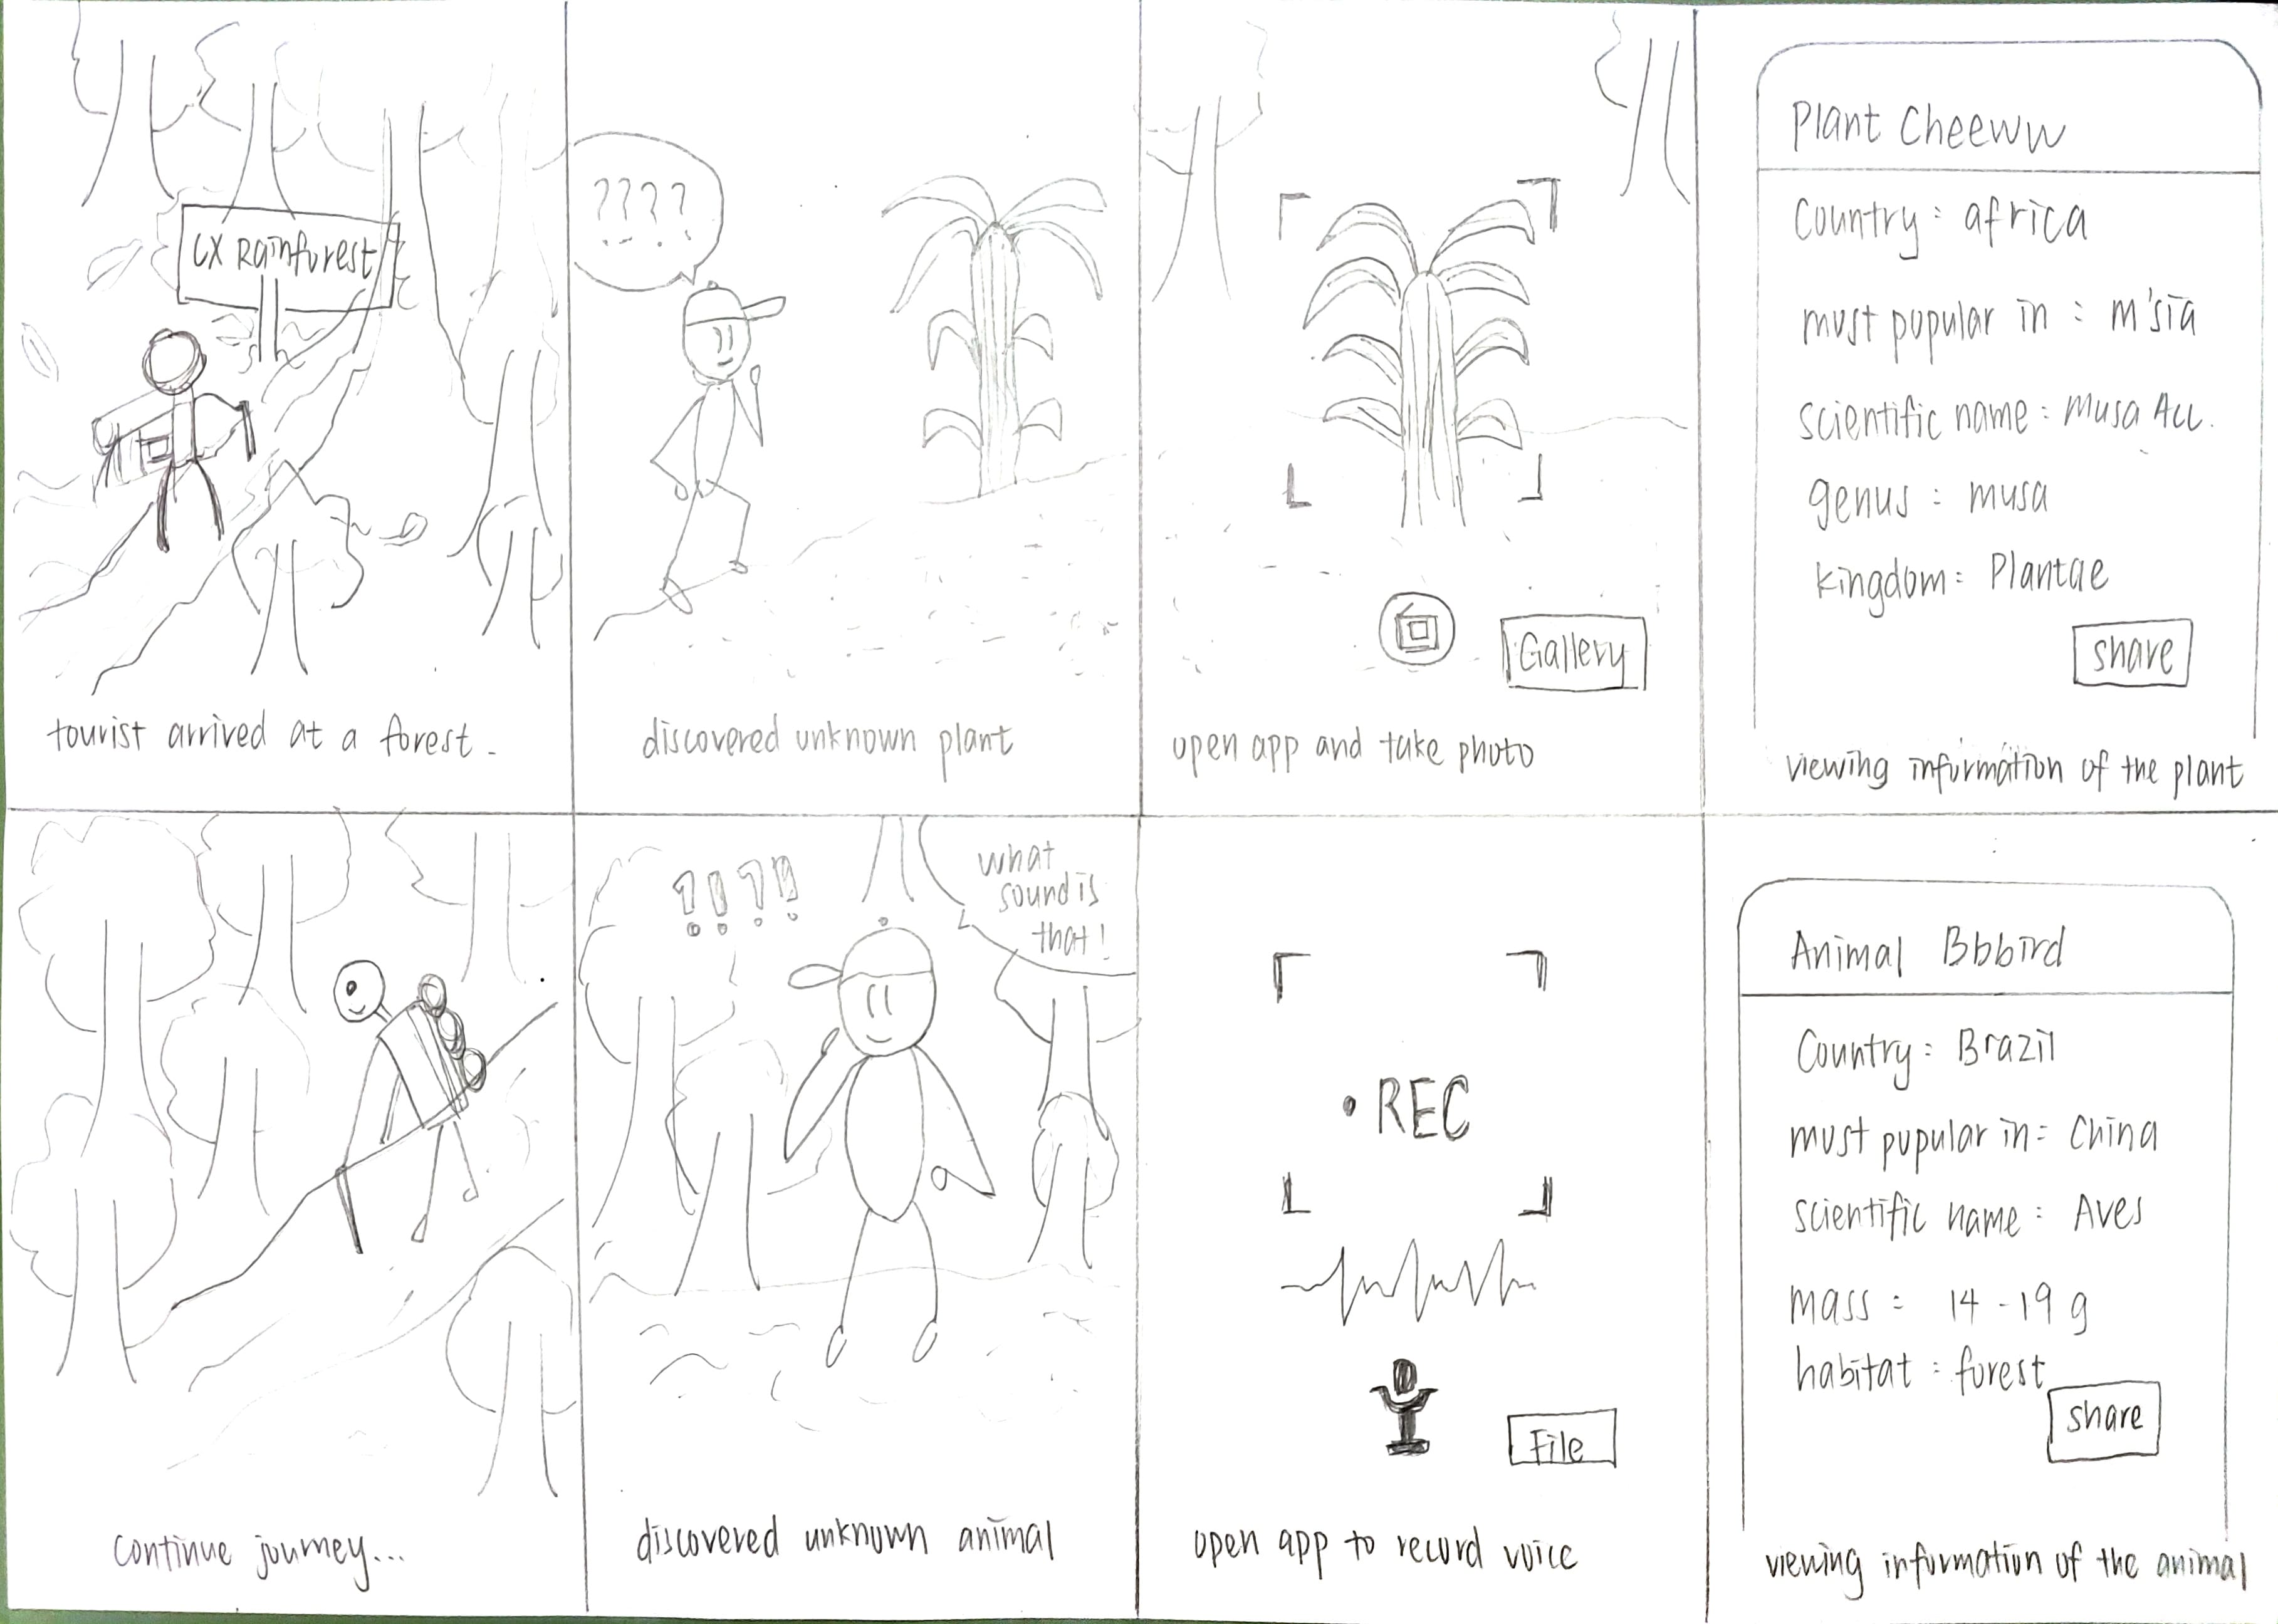 CX Rainforest
tourist arrived at a forest.
????
discovered unknown plant
Gallery
open app and take photo
Plant Cheeww
Country : africa
must popular in : m'sia
scientific name : Musa Acc.
genus : musa
kingdom : Plantae
share
viewing information of the plant
continue journey...
?!?!
what
sound is
that!
discovered unknown animal
• REC
File
open app to record voice
Animal Bbbird
Country : Brazil
must popular in : China
scientific name : Aves
mass : 14 - 19 g
habitat : forest
share
viewing information of the animal